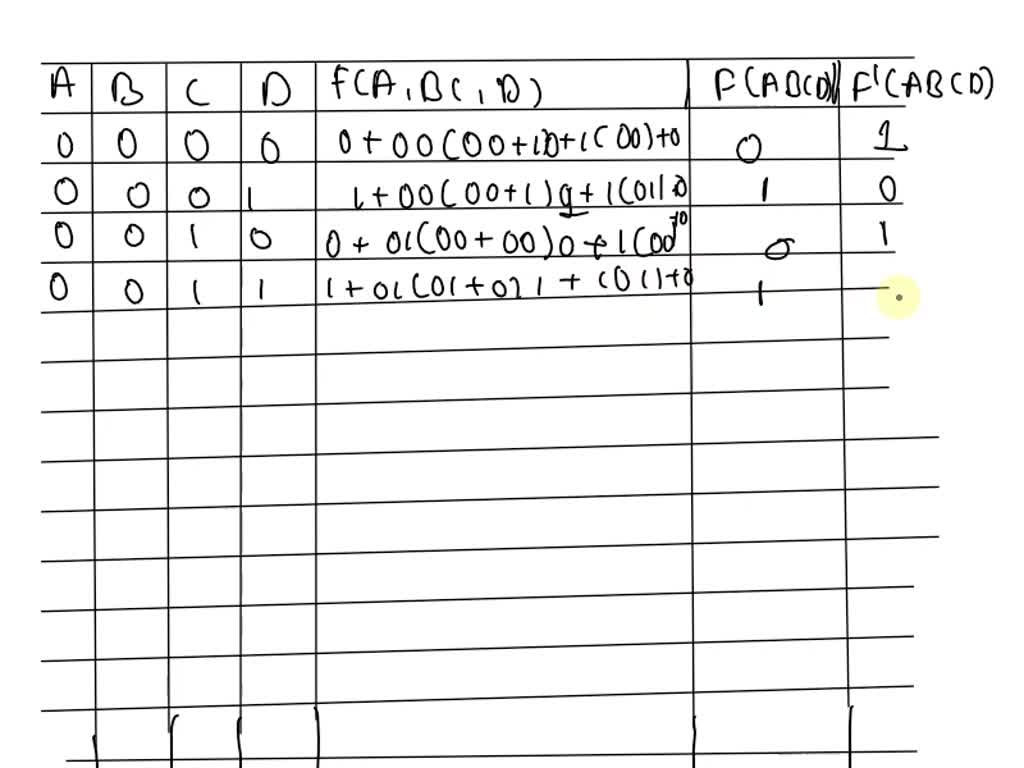 A B C D F(A,BC,D) F(ABCD) F'(ABCD)
0 0 0 0 0+00(00+1)0+1(00)+0 0 1
0 0 0 1 1+00(00+1) + 1(01) 1 0
0 0 1 0 0+01(00+00)0+1(00 +0 0 1
0 0 1 1 1+01(01+0)1+(01)+0 1